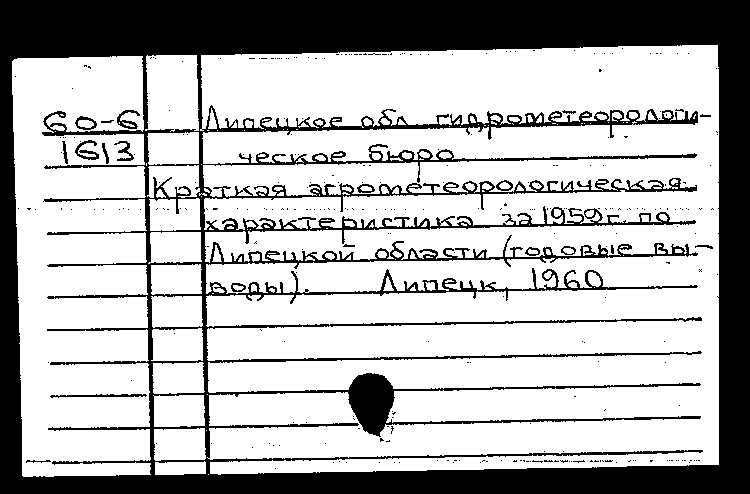 60-6 Липецкое обл гидрометеорологи-
1613 ческое бюро
Краткая агрометеорологическая
характеристика за 1959г. по
Липецкой области (годовые вы-
воды). Липецк, 1960